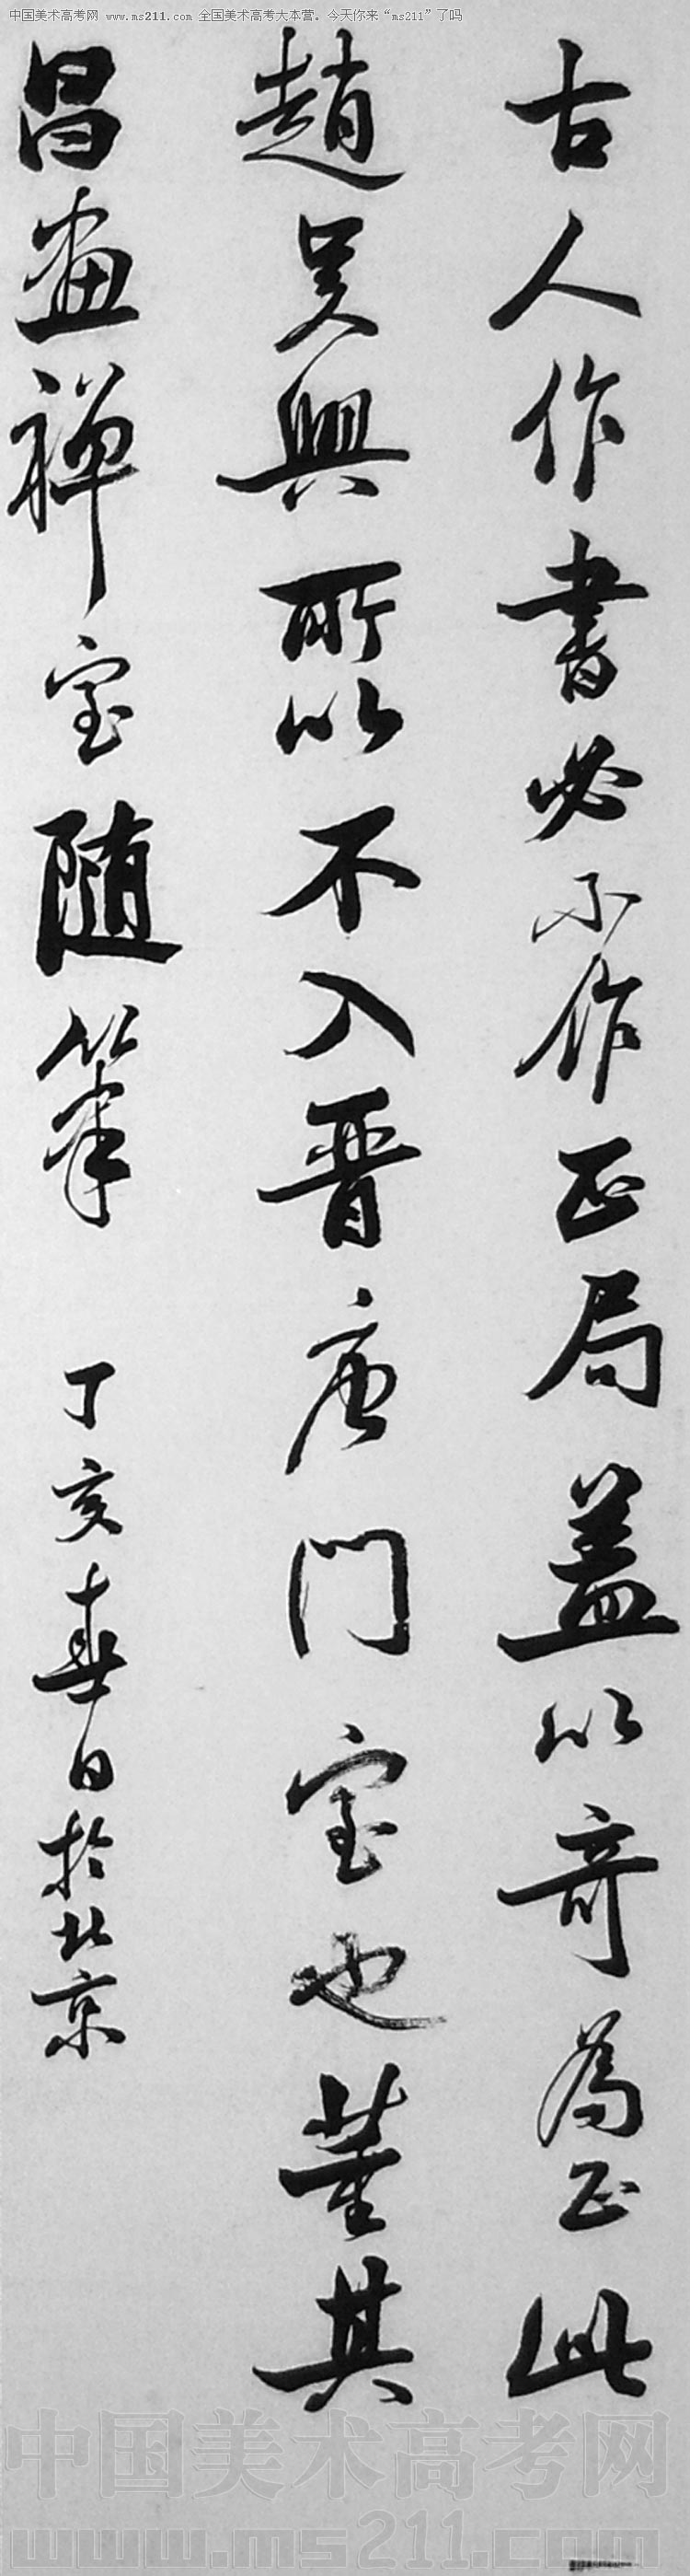 中国美术高考网 www.ms211.com 全国美术高考大本营。今天你来“ms211”了吗
古人作書必不作正局盖以奇為正此
趙吴興所以不入晋唐門室也董其
昌畫禅室随筆 丁亥春日於北京
中国美术高考网
www.ms211.com